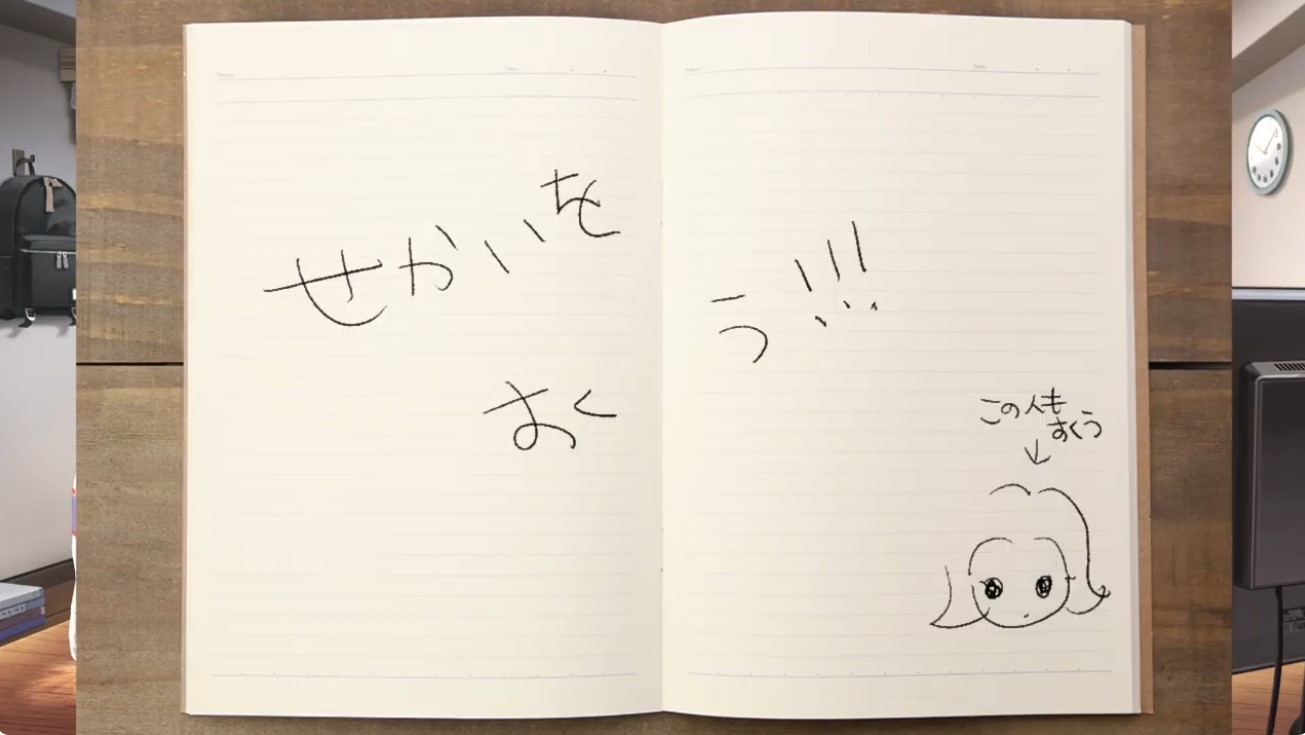 せかいを
すくう!!!
この人も
すくう
↓